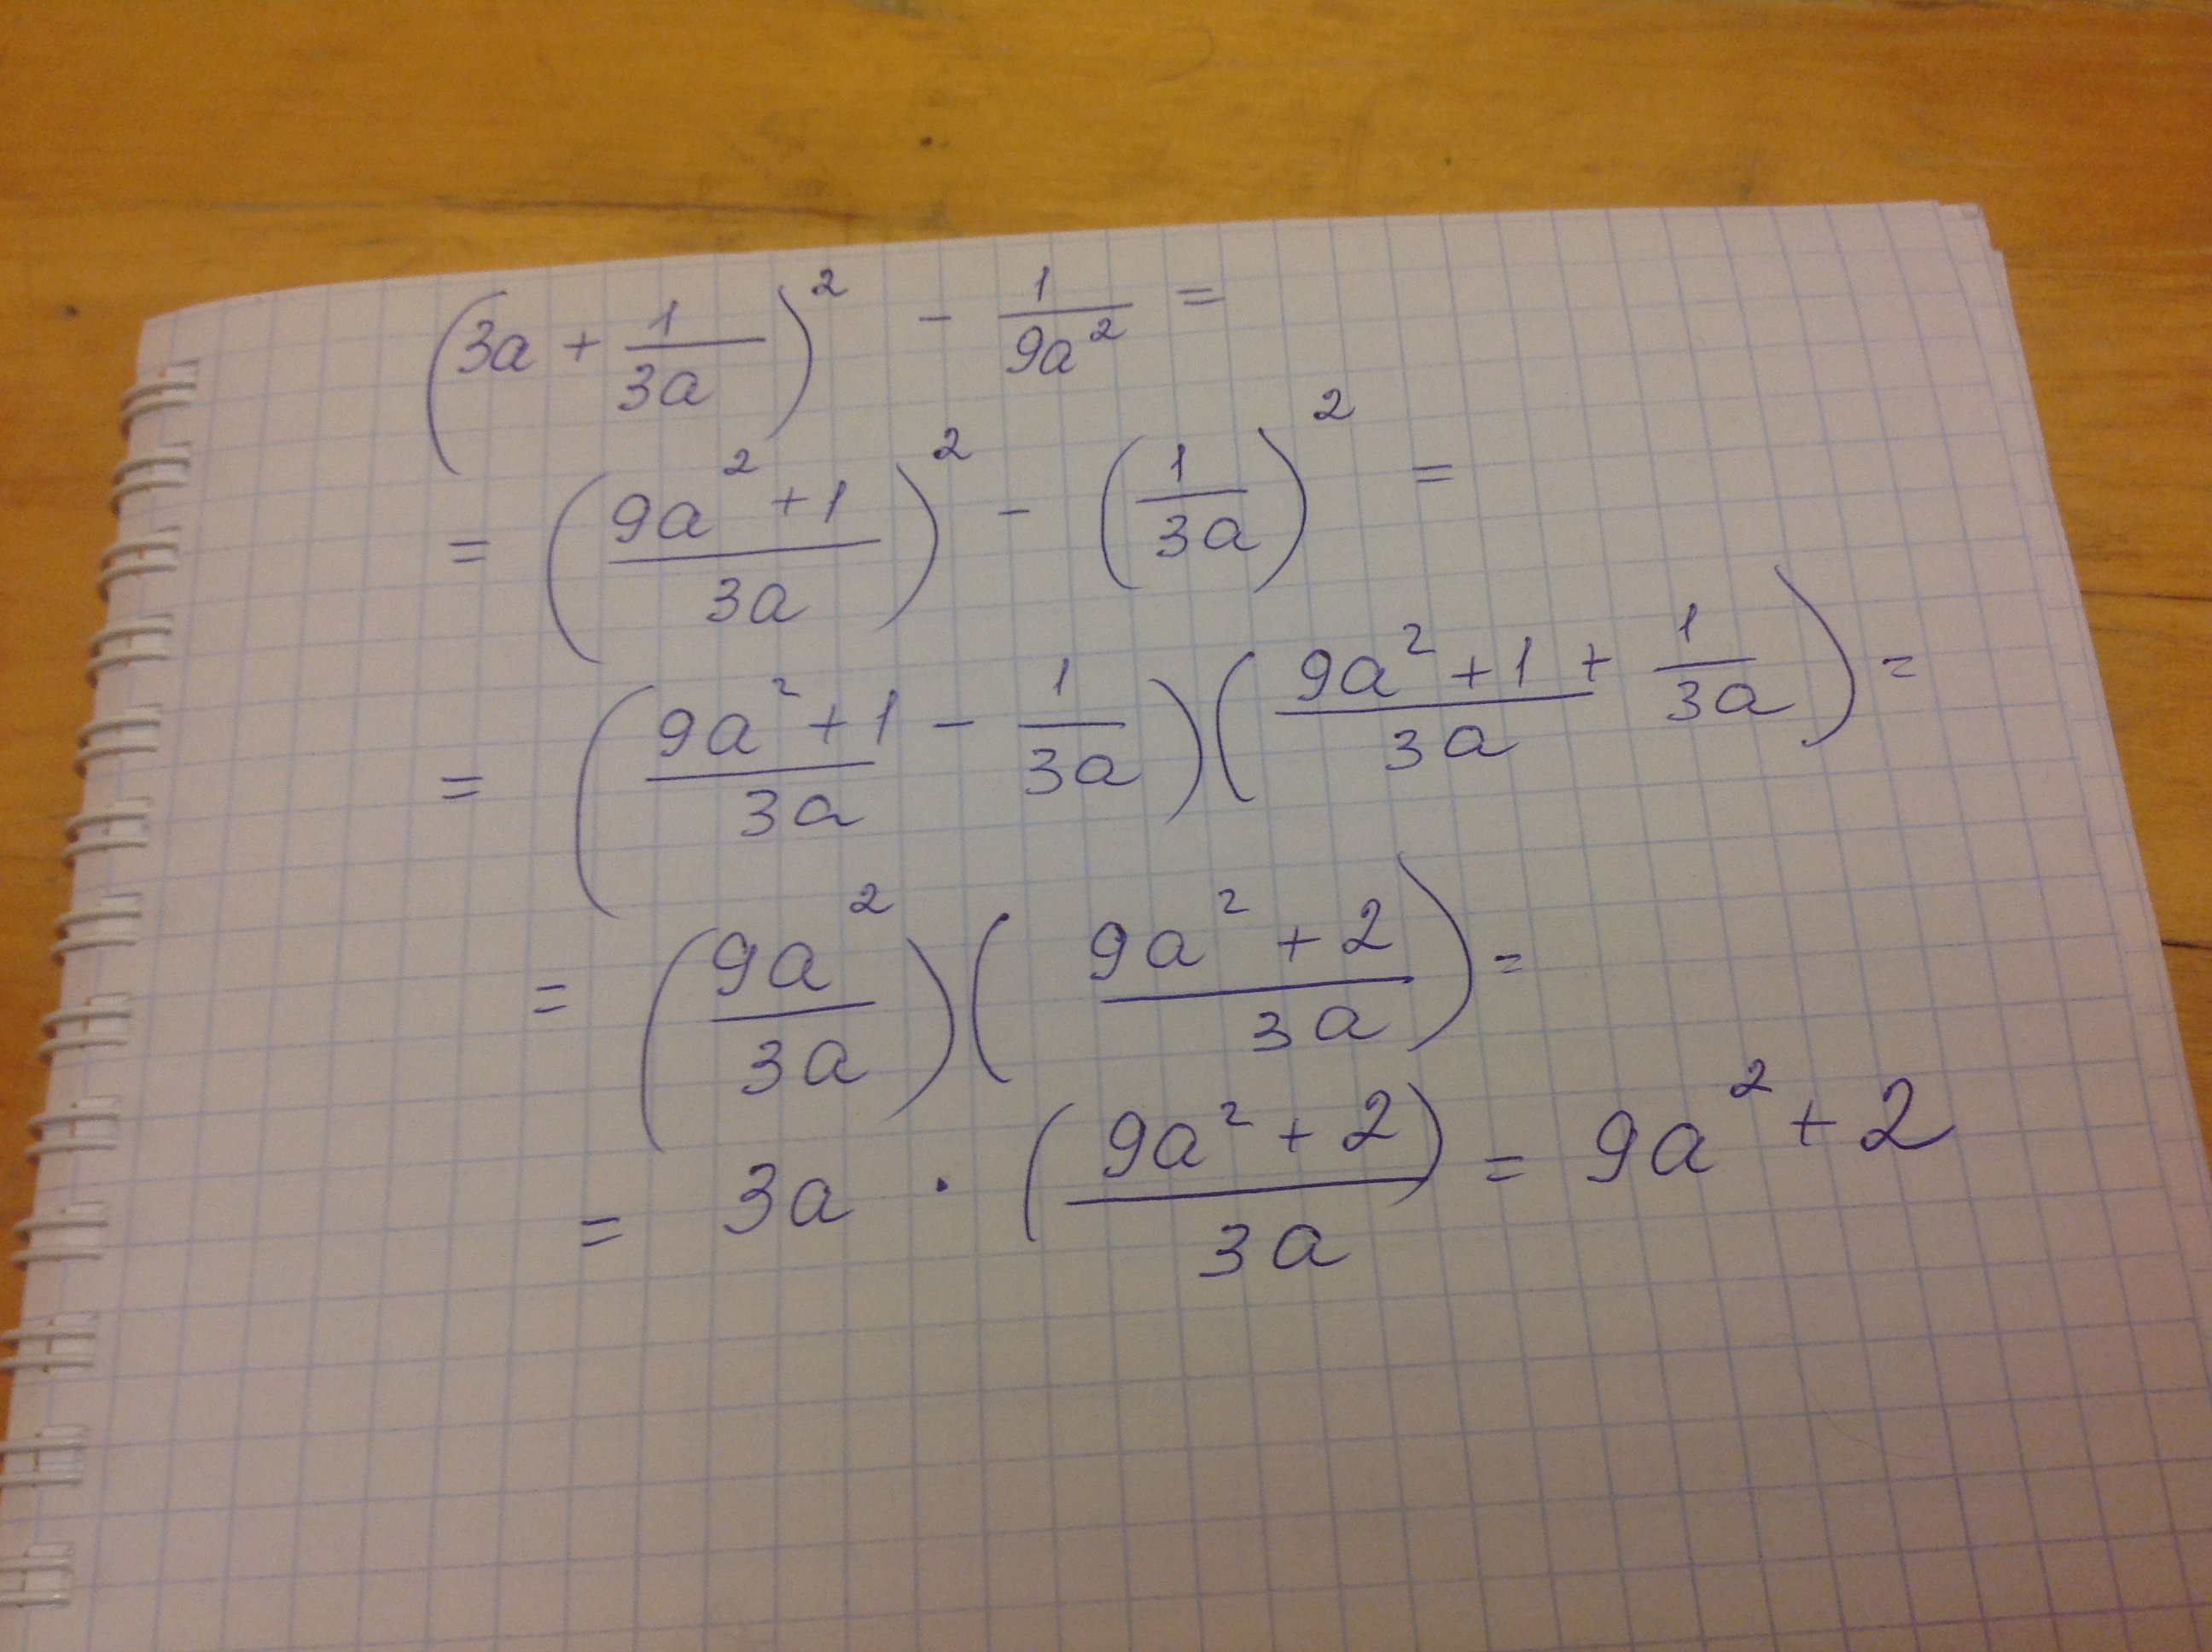 (3a + 1/3a)² - 1/9a² =
= (9a² + 1/3a)² - (1/3a)² =
= (9a² + 1/3a - 1/3a)(9a² + 1/3a + 1/3a) =
= (9a²/3a)(9a² + 2/3a) =
= 3a · (9a² + 2/3a) = 9a² + 2